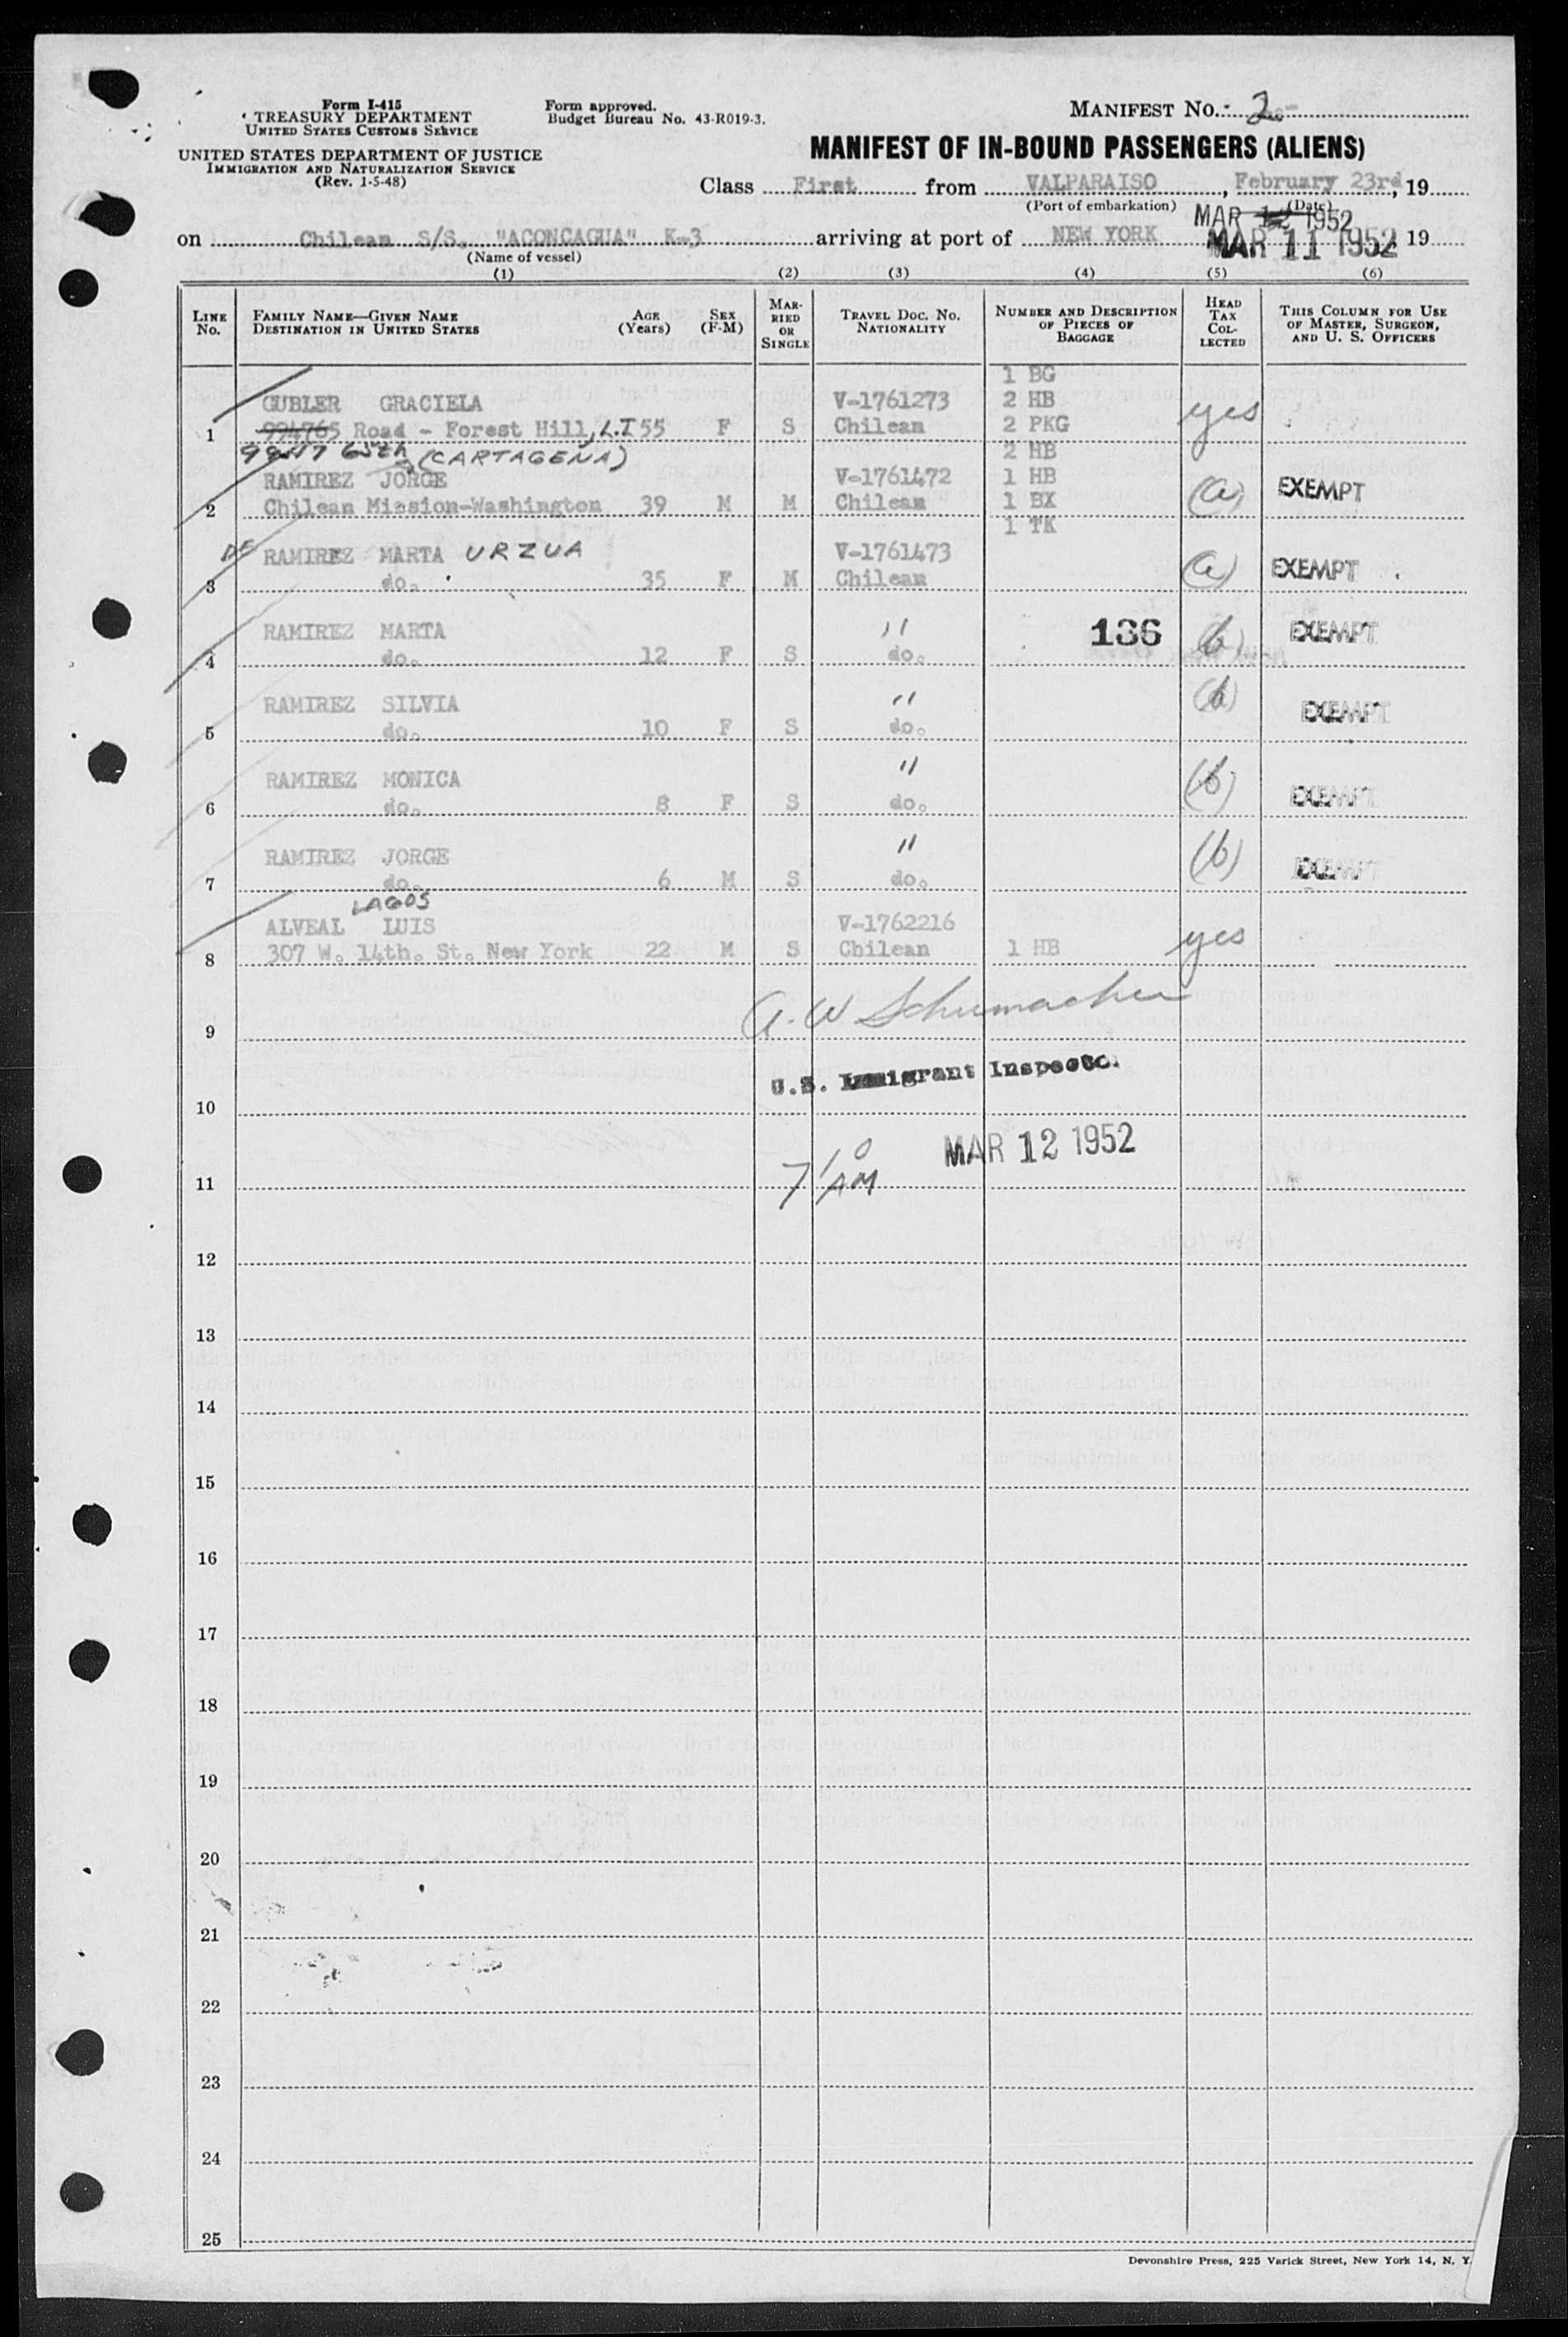 Form I-415
TREASURY DEPARTMENT
UNITED STATES CUSTOMS SERVICE
UNITED STATES DEPARTMENT OF JUSTICE
IMMIGRATION AND NATURALIZATION SERVICE
(Rev. 1-5-48)
Form approved.
Budget Bureau No. 43-R019-3.
MANIFEST No. 2
MANIFEST OF IN-BOUND PASSENGERS (ALIENS)
Class First from VALPARAISO, February 23rd, 19
(Port of embarkation) (Date)
MAR 12 1952
on Chilean S/S. "ACONCAGUA" K-3 arriving at port of NEW YORK MAR 11 1952, 19
(Name of vessel)
(1) (2) (3) (4) (5) (6)
LINE No. FAMILY NAME—GIVEN NAME DESTINATION IN UNITED STATES AGE (Years) SEX (F-M) MARRIED OR SINGLE TRAVEL DOC. NO. NATIONALITY NUMBER AND DESCRIPTION OF PIECES OF BAGGAGE HEAD TAX COLLECTED THIS COLUMN FOR USE OF MASTER, SURGEON, AND U. S. OFFICERS
1 BG
GUBLER GRACIELA V-1761273 2 HB
1 994765 Road - Forest Hill, L.I 55 F S Chilean 2 PKG yes
65th (CARTAGENA) 2 HB
RAMIREZ JORGE V-1761472 1 HB
2 Chilean Mission-Washington 39 M M Chilean 1 BX (a) EXEMPT
1 TK
DE RAMIREZ MARTA URZUA V-1761473
3 do. 35 F M Chilean (a) EXEMPT
RAMIREZ MARTA " 186
4 do. 12 F S do. (b) EXEMPT
RAMIREZ SILVIA "
5 do. 10 F S do. (b) EXEMPT
RAMIREZ MONICA "
6 do. 8 F S do. (b) EXEMPT
RAMIREZ JORGE "
7 do. 6 M S do. (b) EXEMPT
LAGOS
ALVEAL LUIS V-1762216
8 307 W. 14th. St. New York 22 M S Chilean 1 HB yes
A. W Schumacher
9
U.S. Immigrant Inspector
10
7 10 AM MAR 12 1952
11
12
13
14
15
16
17
18
19
20
21
22
23
24
25
Devonshire Press, 225 Varick Street, New York 14, N. Y.